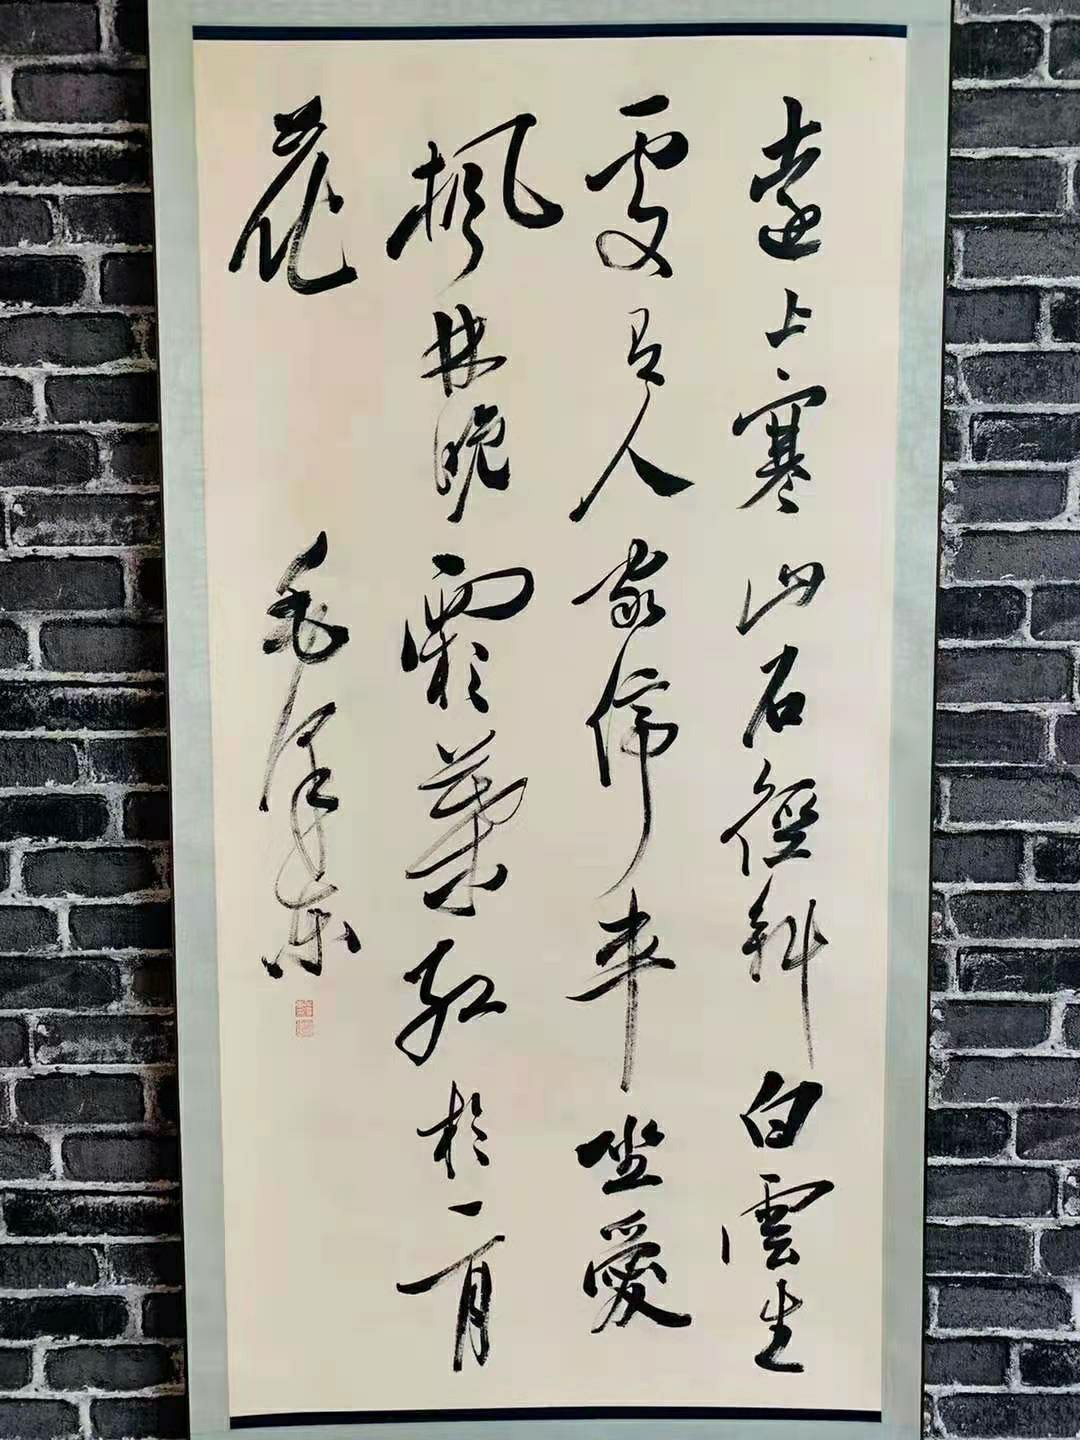 遠上寒山石徑斜白雲生
處有人家停車坐愛
楓林晚霜葉紅於二月
花
毛澤东